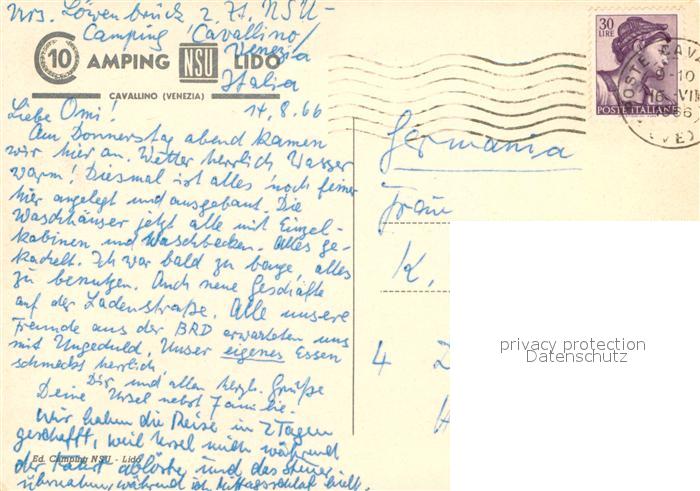 Urs. Löwenbrück z. Zt. NSU-
Camping Cavallino/
Venezia
Italia
C 10 AMPING NSU LIDO
CAVALLINO (VENEZIA)
14.8.66
Liebe Omi!
Am Donnerstag abend kamen
wir hier an. Wetter herrlich Wasser
warm! Diesmal ist alles noch feiner
hier angelegt und ausgebaut. Die
Waschhäuser jetzt alle mit Einzel-
kabinen und Waschbecken. Alles ge-
kachelt. Ich war bald zu bange, alles
zu benutzen. Auch neue Geschäfte
auf der Ladenstraße. Alle unsere
Freunde aus der BRD erwarteten uns
mit Ungeduld. Unser eigenes Essen
schmeckt herrlich.
Dir und allen herzl. Grüße
Deine Ursel nebst Familie.
Wir haben die Reise in 2 Tagen
geschafft, weil Ursel mich während
der Fahrt ablöste und das Steuer
übernahm, während ich Mittagsschlaf hielt.
Ed. Camping NSU - Lido
30
LIRE
POSTE ITALIANE
POSTE CAVA
Germania
Frau
K,
4 D
privacy protection
Datenschutz